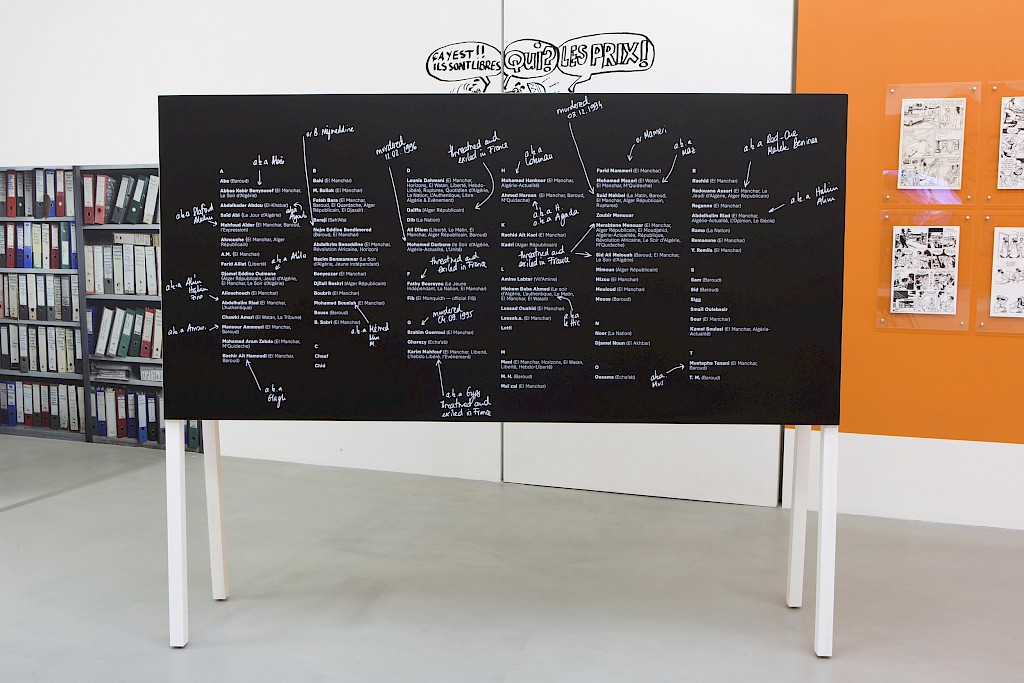 ÇA YEST!!
ILS SONT LIBRES
QUI?
LES PRIX!
A
Aba (Baroud)
Abbas Kebir Benyoucef (El Manchar,
Le Soir d'Algérie)
Abdelkader Abdou (El-Khabar)
Said Abi (Le Jour d'Algérie)
Mahfoud Aider (El Manchar, Baroud,
l'Expression)
Aknouche (El Manchar, Alger
Républicain)
A.M. (El Manchar)
Farid Alilat (Liberté)
Djamel Eddine Oulmane
(Alger Républicain, Jeudi d'Algérie,
El Manchar, Le Soir d'Algérie)
Allouchouch (El Manchar)
Abdelhalim Riad (El Manchar,
L'Authentique)
Chawki Amari (El Watan, La Tribune)
Mansour Ammouri (El Manchar,
Baroud)
Mohamed Arezn Zebda (El Manchar,
M'Quidech)
Bachir Aït Hamoudi (El Manchar,
Baroud)
a.k.a
a.k.a
a.k.a Amouri
a.k.a
or B. Nejmeddine
B
Bahi (El Manchar)
M. Ballak (El Manchar)
Fatah Bara (El Manchar,
Baroud, El Ouardacha, Alger
Républicain, El Djazaïr)
Benji (Sah'Afa)
Nejm Eddine Bendimered
(Baroud, El Manchar)
Abdelkrim Beneddine (El Manchar,
Révolution Africaine, Horizon)
Nacim Benmammar (Le Soir
d'Algérie, Jeune Indépendant)
Benyezzar (El Manchar)
Djilali Boukri (Alger Républicain)
Boubrit (El Manchar)
Mohamed Bouslah (El Manchar)
Bouss (El Manchar)
B. Sabri (El Manchar)
a.k.a
C
Chaaf
Chid
murdered
11.02.1996
D
Lounis Dahmani (El Manchar,
Horizons, El Watan, Liberté, Hebdo-
Libéré, Ruptures, Quotidien d'Algérie,
La Nation, L'Authentique, Libre
Algérie & Évènement)
Daiffa (Alger Républicain)
Dib (La Nation)
Ali Dilem (Liberté, Le Matin, El
Manchar, Alger Républicain, Baroud)
Mohamed Dorbane (le Soir d'Algérie,
Algérie-Actualité, L'Unité)
threatned and
exiled in France
threatned and
exiled in France
F
Fathy Bourayou (Le Jeune
Indépendant, La Nation, El Manchar)
Fib (El Monquich — official FIS)
murdered
04.09.1995
G
Brahim Guerroui (El Manchar)
Gharezy (Echa'ab)
Karim Mahfouf (El Manchar, Liberté,
L'hebdo Libéré, l'Événement)
a.k.a Gyps
threatned and
exiled in France
a.k.a
H
Mohamed Hankour (El Manchar,
Algérie-Actualité)
Ahmed Haroun (El Manchar, Baroud,
M'Quidech)
a.k.a
K
Rachid Aït Kaci (El Manchar)
Kadri (Alger Républicain)
threatned and
exiled in France
L
Amine Labter (Vit'Amine)
Hichem Baba Ahmed (Le soir
d'Algérie, L'Authentique, Le Matin,
El Manchar, El Watan)
Lessad Ouahid (El Manchar)
Lessak.a. (El Manchar)
Lotti
a.k.a
Le Hic
M
Mani (El Manchar, Horizons, El Watan,
Liberté, Hebdo-Libéré)
M. H. (Baroud)
Maï zal (El Manchar)
murdered
03.12.1994
or Mameri
a.k.a
Maz
Farid Mammeri (El Manchar)
Mohamed Mazari (El Watan,
El Manchar, M'Quidech)
Saïd Mekbel (Le Matin, Baroud,
El Manchar, Alger Républicain,
Ruptures)
Zoubir Menouar
Merabtene Menouar (El Manchar,
Alger Républicain, El Moudjahid,
Algérie-Actualités, République,
Révolution Africaine, Le Soir d'Algérie,
M'Quidech)
Sid Ali Melouah (Baroud, El Manchar,
Le Soir d'Algérie)
Mimoun (Alger Républicain)
Mizou (El Manchar)
Mouloud (El Manchar)
Mousse (Baroud)
N
Noor (La Nation)
Djamel Noun (El Akhbar)
O
Oussama (Echa'ab)
a.k.a
R
Rachid (El Manchar)
Redouane Assari (El Manchar, Le
Jeudi d'Algérie, Alger Républicain)
Reganne (El Manchar)
Abdelhalim Riad (El Manchar,
Algérie-Actualité, L'Opinion, Le Siècle)
Ramo (La Nation)
Ramzoune (El Manchar)
Y. Remila (El Manchar)
a.k.a Halim
S
Sam (Baroud)
Sid (Baroud)
Sigg
Smaïl Oulebsir
Sour (El Manchar)
Kamel Souissi (El Manchar, Algérie-
Actualité)
T
Mustapha Tenani (El Manchar,
Baroud)
T. M. (Baroud)
a.k.a